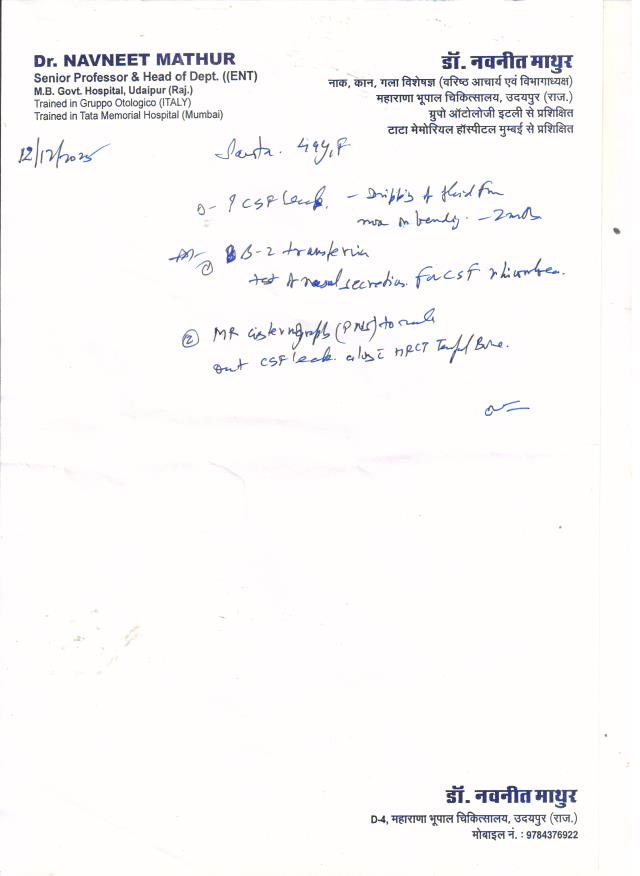 Dr. NAVNEET MATHUR
Senior Professor & Head of Dept. ((ENT)
M.B. Govt. Hospital, Udaipur (Raj.)
Trained in Gruppo Otologico (ITALY)
Trained in Tata Memorial Hospital (Mumbai)
डॉ. नवनीत माथुर
नाक, कान, गला विशेषज्ञ (वरिष्ठ आचार्य एवं विभागाध्यक्ष)
महाराणा भूपाल चिकित्सालय, उदयपुर (राज.)
ग्रुपो ऑटोलोजी इटली से प्रशिक्षित
टाटा मेमोरियल हॉस्पीटल मुम्बई से प्रशिक्षित
12/12/2025
49y, F
? CSF leak. - Dripping of fluid from
nose on bending. - 2
① B-2 transferrin
test of nasal secretion for CSF rhinorrhea.
② MR cisternography (PNS) to rule
out CSF leak. along c̄ HRCT Temporal Bone.
डॉ. नवनीत माथुर
D-4, महाराणा भूपाल चिकित्सालय, उदयपुर (राज.)
मोबाइल नं. : 9784376922